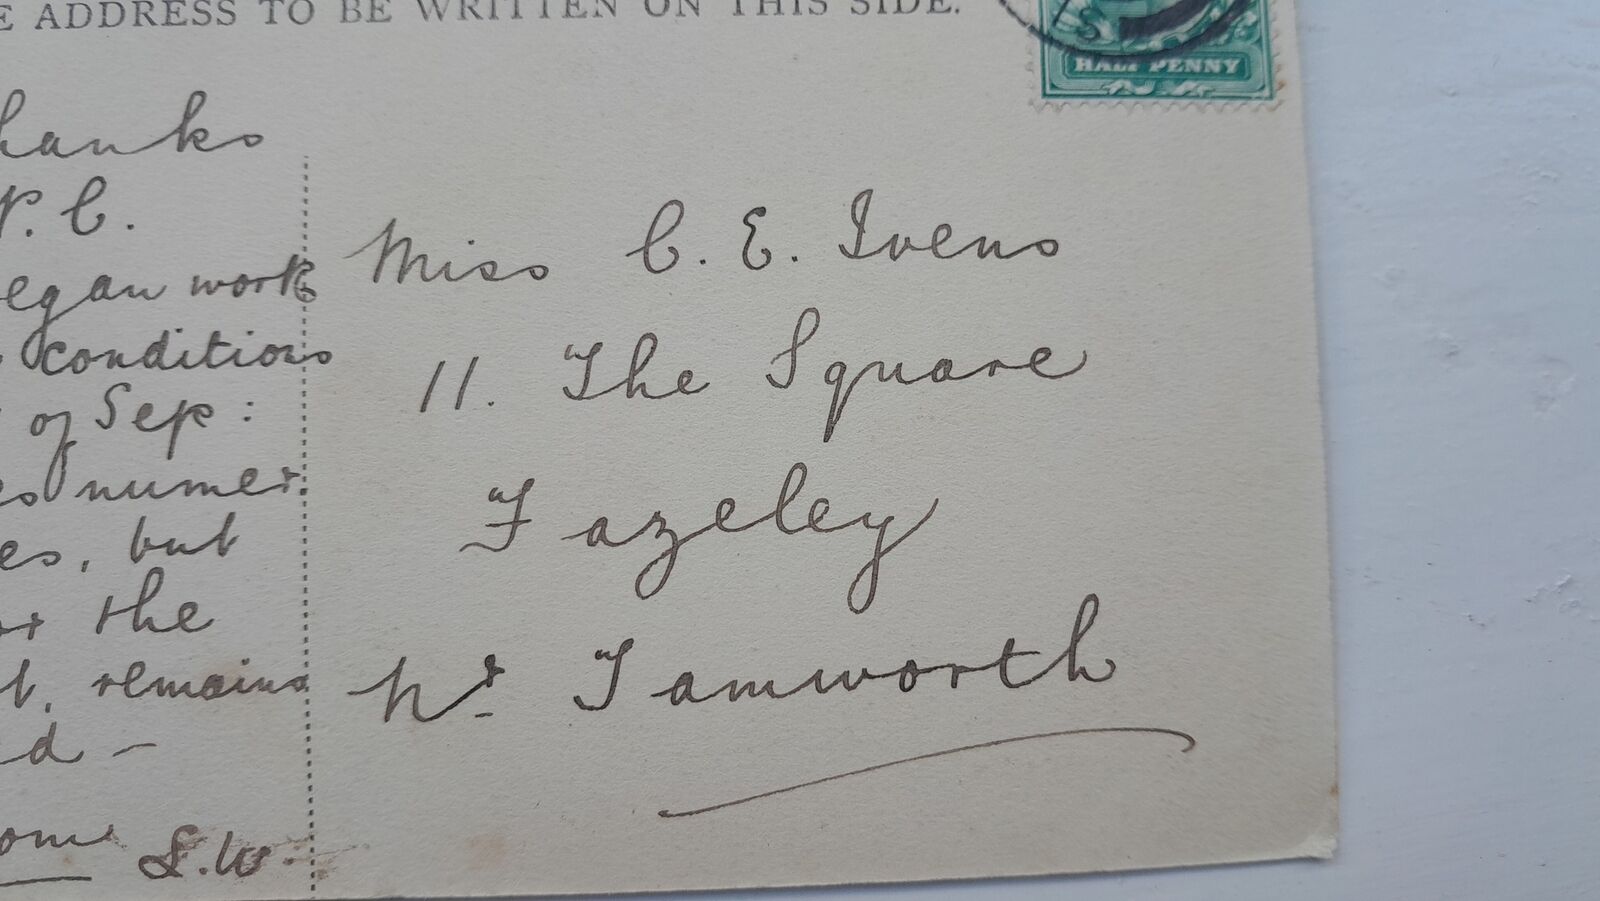 ADDRESS TO BE WRITTEN ON THIS SIDE.
HALF PENNY
hanks
P. C.
egan work
conditions
of Sep:
numer.
es, but
or the
t, remains
d –
ome S.W.
Miss C. E. Ivens
11. The Square
Fazeley
Nr Tamworth